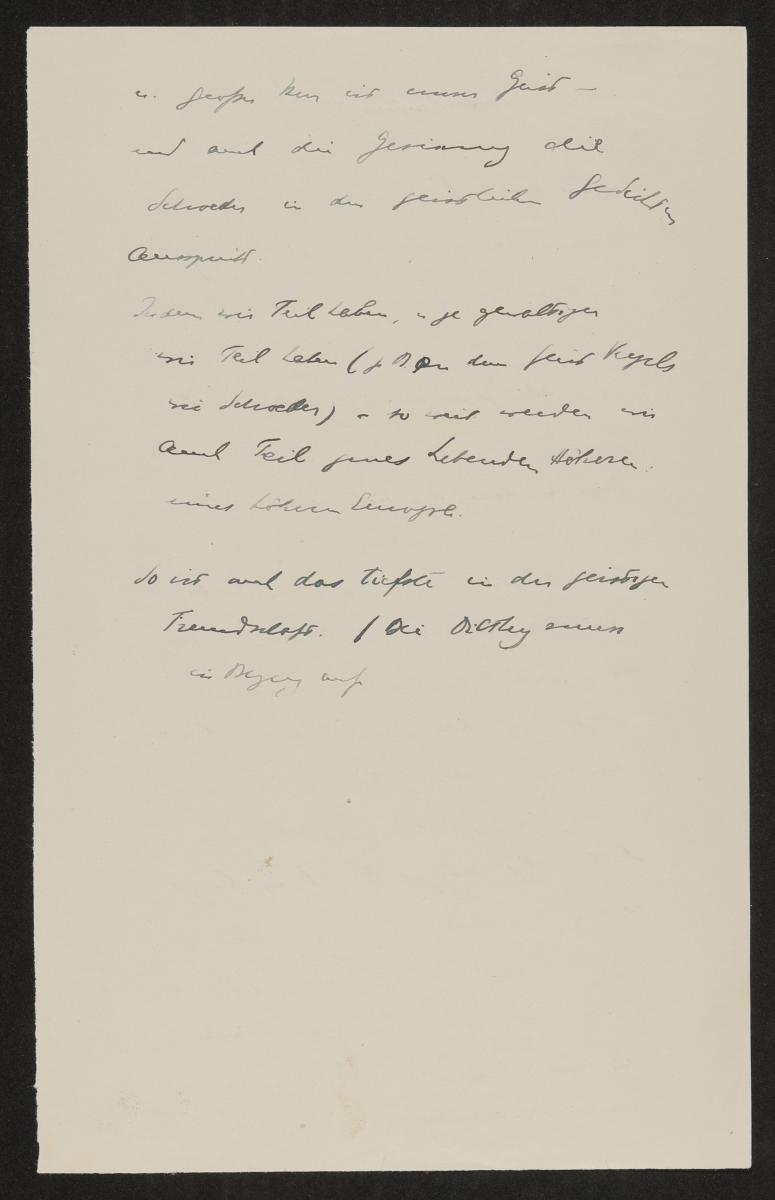 u. großer ist unser Geist –
und auch die Gesinnung die
Schroeder in den geistlichen Gedichten
ausspricht.
Indem wir Teil haben, u je gewaltiger
wir Teil haben (z B an dem Geist Vergils
wie Schroeder) – so weit werden wir
auch Teil jenes Lebenden Höheren:
eines höhern Europa.
So ist auch das tiefste in der geistigen
Freundschaft. / Die Dilthey
in Bezug auf